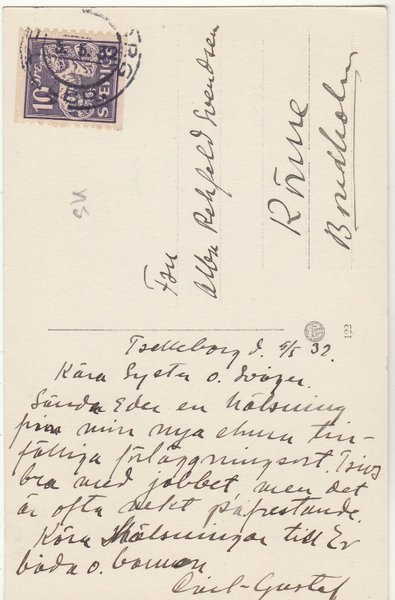 Fru
Alba Rehfeld Svendsen
Rönne
Bornholm
10 ÖRE
SVERIGE
122
Trelleborg d. 9/5 32.
Kära Syster o. Svåger.
Sända Eder en hälsning
från min nya ehuru till-
fälliga förläggningsort. Trivs
bra med jobbet, men det
är ofta nekt påfrestande.
Kära Hälsningar till Er
båda o. barnen
Carl-Gustaf